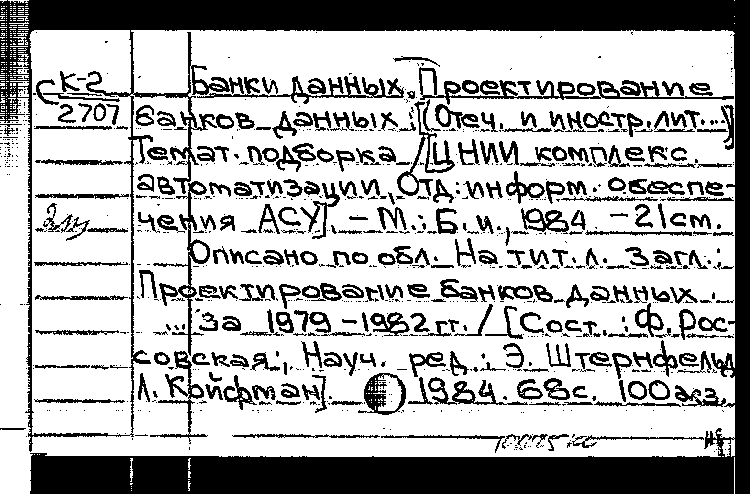 К-2
2707
Банки данных. Проектирование
банков данных : [(Отеч. и иностр. лит...)
Темат. подборка / [ЦНИИ комплекс.
автоматизации, Отд. информ. обеспе-
чения АСУ]. – М.: Б. и., 1984 – 21 см.
Описано по обл. На тит. л. загл.:
Проектирование банков данных.
... за 1979 – 1982 гг. / [Сост.: Ф. Рос-
совская; Науч. ред.: Э. Штернфельд
Л. Койфман]. 1984. 68 с. 100 экз.